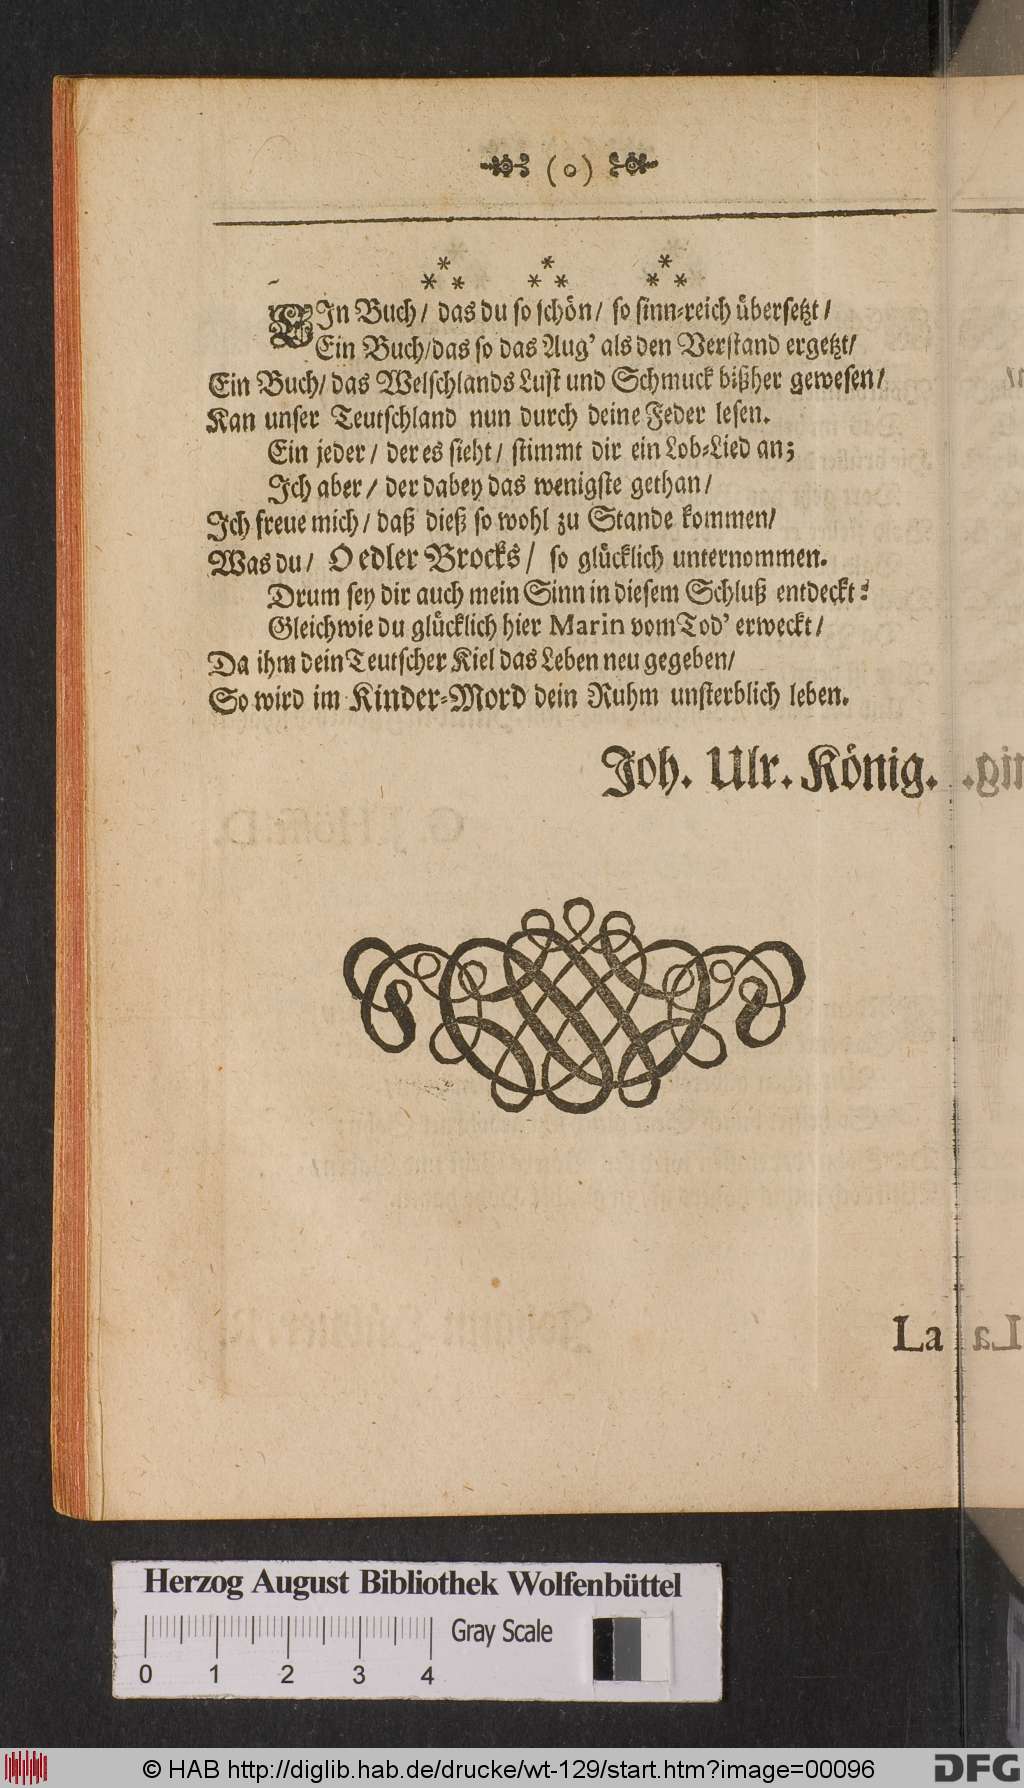 (o)
* * *
* * * * * *
EIn Buch/ das du so schön/ so sinn-reich übersetzt/
Ein Buch/das so das Aug' als den Verstand ergetzt/
Ein Buch/ das Welschlands Lust und Schmuck bißher gewesen/
Kan unser Teutschland nun durch deine Feder lesen.
Ein jeder/ der es sieht/ stimmt dir ein Lob-Lied an;
Ich aber/ der dabey das wenigste gethan/
Ich freue mich/ daß dieß so wohl zu Stande kommen/
Was du/ O edler Brocks/ so glücklich unternommen.
Drum sey dir auch mein Sinn in diesem Schluß entdeckt:
Gleichwie du glücklich hier Marin vom Tod' erweckt/
Da ihm dein Teutscher Kiel das Leben neu gegeben/
So wird im Kinder-Mord dein Ruhm unsterblich leben.
Joh. Ulr. König.
La
Herzog August Bibliothek Wolfenbüttel
Gray Scale
0 1 2 3 4
© HAB http://diglib.hab.de/drucke/wt-129/start.htm?image=00096
DFG